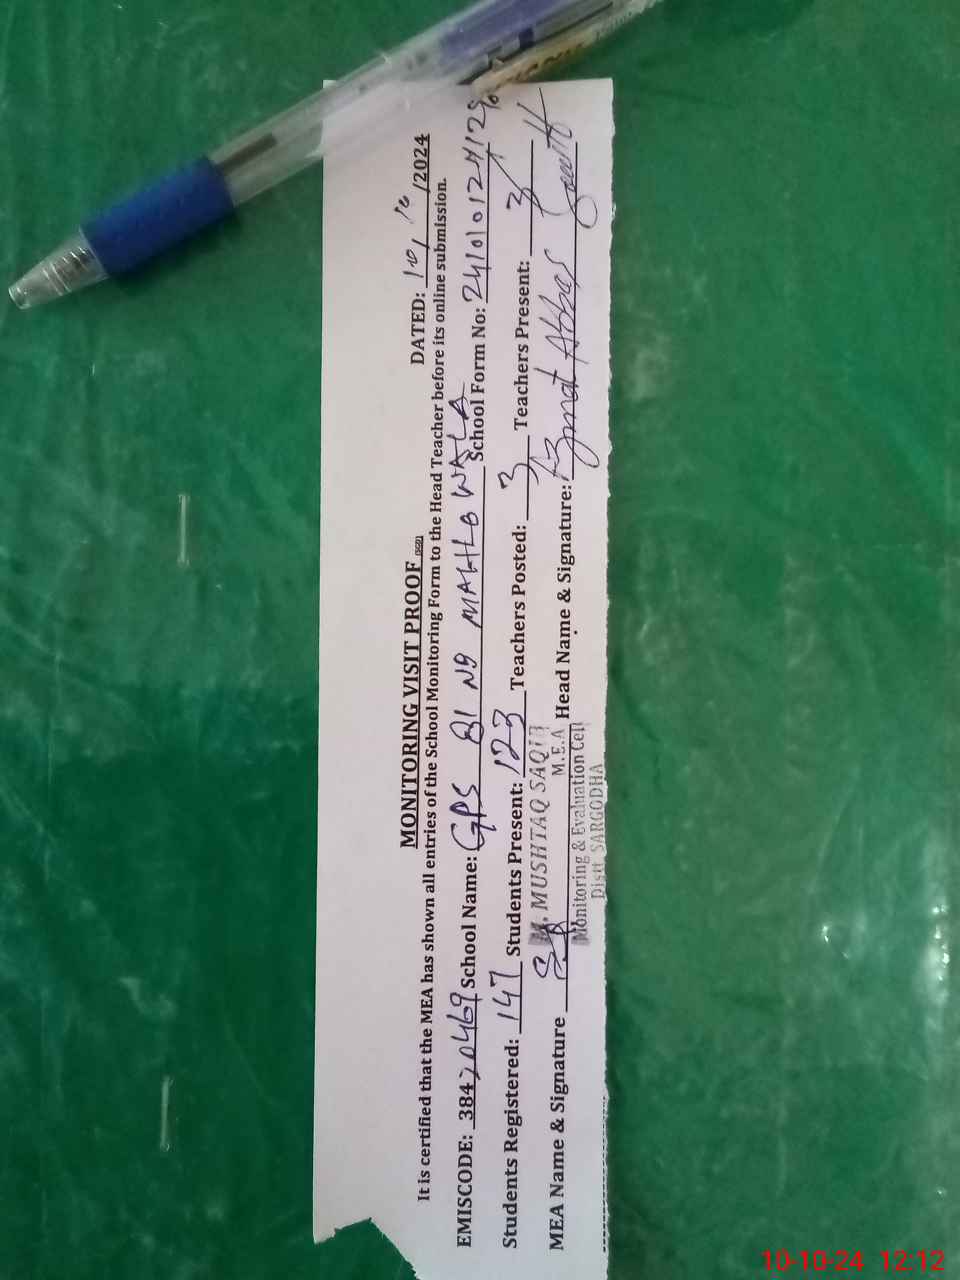 MONITORING VISIT PROOF (SED)
DATED: 10/10/2024
It is certified that the MEA has shown all entries of the School Monitoring Form to the Head Teacher before its online submission.
EMISCODE: 38420469 School Name: GPS 81 NB MAHLB WALA School Form No:
Students Registered: 147 Students Present: 123 Teachers Posted: 3 Teachers Present: 3
MEA Name & Signature Head Name & Signature: Azmat Abbas
M. MUSHTAQ SAQIB
M.E.A
Monitoring & Evaluation Cell
Distt. SARGODHA
10-10-24 12:12